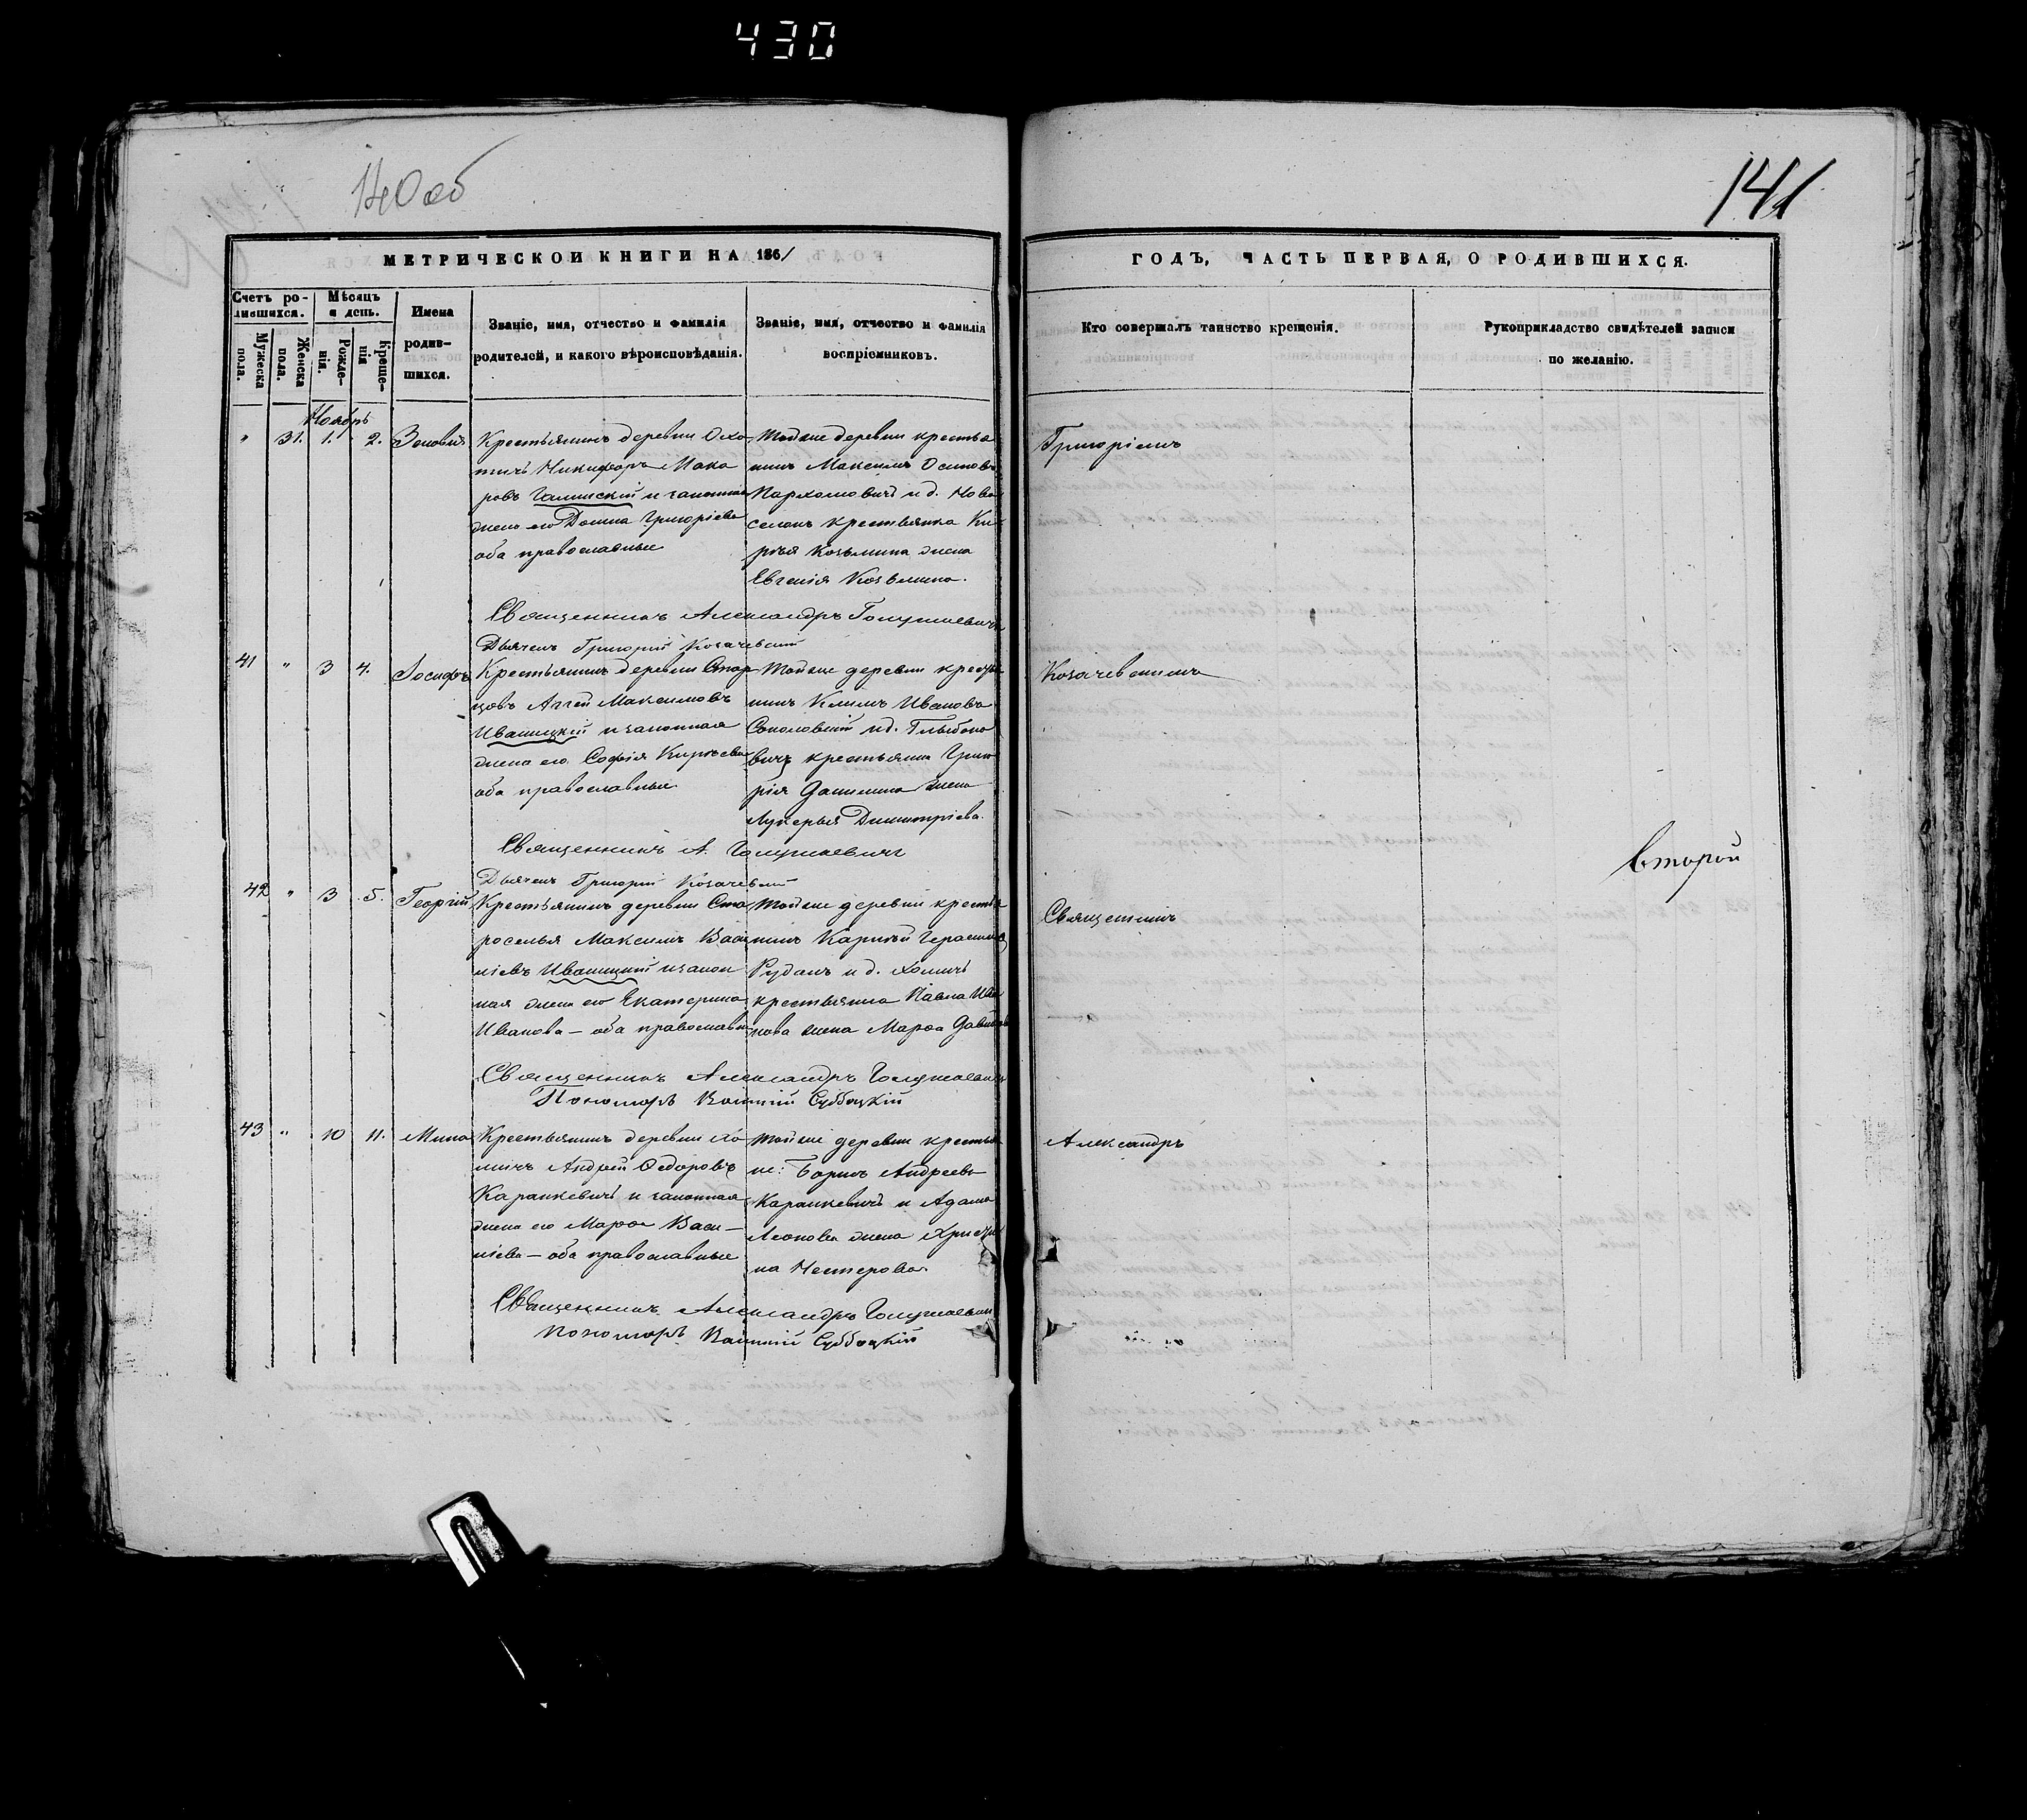 430
140 об
141
МЕТРИЧЕСКОЙ КНИГИ НА 1861
ГОДЪ, ЧАСТЬ ПЕРВАЯ, О РОДИВШИХСЯ.
Счетъ родившихся.
Мѣсяцъ и день.
Мужеска пола.
Женска пола.
Рожденія.
Крещенія
Имена родившихся.
Званіе, имя, отчество и фамилія
родителей, и какого вѣроисповѣданія.
Званіе, имя, отчество и фамилія
воспріемниковъ.
Кто совершалъ таинство крещенія.
Рукоприкладство свидѣтелей записи
по желанію.
Ноябрь
" 31. 1. 2. Зеновія
Крестьянинъ деревни Охо
тичъ Никифоръ Мака
ровъ и законная
жена его Домна Григоріева
оба православные
Тойже деревни крестья
нинъ Максимъ Осиповъ
Пархомовичъ и д. Ново
селокъ крестьянка Ки
Козьмина жена
Евгенія Козьмина.
Григоріемъ
Священникъ Александръ
Дьячекъ Григорій Козачевскій
41 " 3 4. Іосифъ
Крестьянинъ деревни
Аггей Максимовъ
Ивашицкій и законная
жена его Софія
оба православные
Тойже деревни крестья
нинъ Климъ Ивановъ
Соколовскій и д. Глыбоко
вичъ крестьянина Григо
рія Данилина жена
Лукерья Димитріева.
Козачевскимъ
Священникъ А.
Дьячекъ Григорій Козачевскій
Второй
42 " 3 5. Георгій
Крестьянинъ деревни Ста
роселья Максимъ Васи
ліевъ Ивашицкій и закон
ная жена его Екатерина
Иванова — оба православн
Тойже деревни крестья
нинъ Карпъ Герасимовъ
Рудакъ и д. Хомичъ
крестьянина Павла Ива
нова жена Марѳа
Священникъ
Священникъ Александръ
Пономарь Суббоцкій
43 " 10 11. Мина
Крестьянинъ деревни Хо
мичъ Андрей Ѳедоровъ
Каранкевичъ и законная
жена его Марѳа Васи—
ліева — оба православные
Тойже деревни крестья
не: Борисъ Андреевъ
Каранкевичъ и Адама
Леонова жена Христи
на Нестерова
Александръ
Священникъ Александръ
Пономарь Суббоцкій